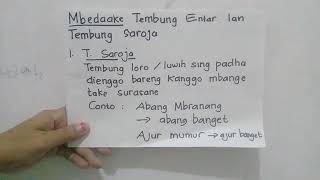 Mbedaake Tembung Entar lan
Tembung Saroja
1. T. Saroja
Tembung loro / luwih sing padha
dienggo bareng kanggo mbange
take surasane
Conto : Abang Mbranang
→ abang banget
Ajur mumur → ajur banget